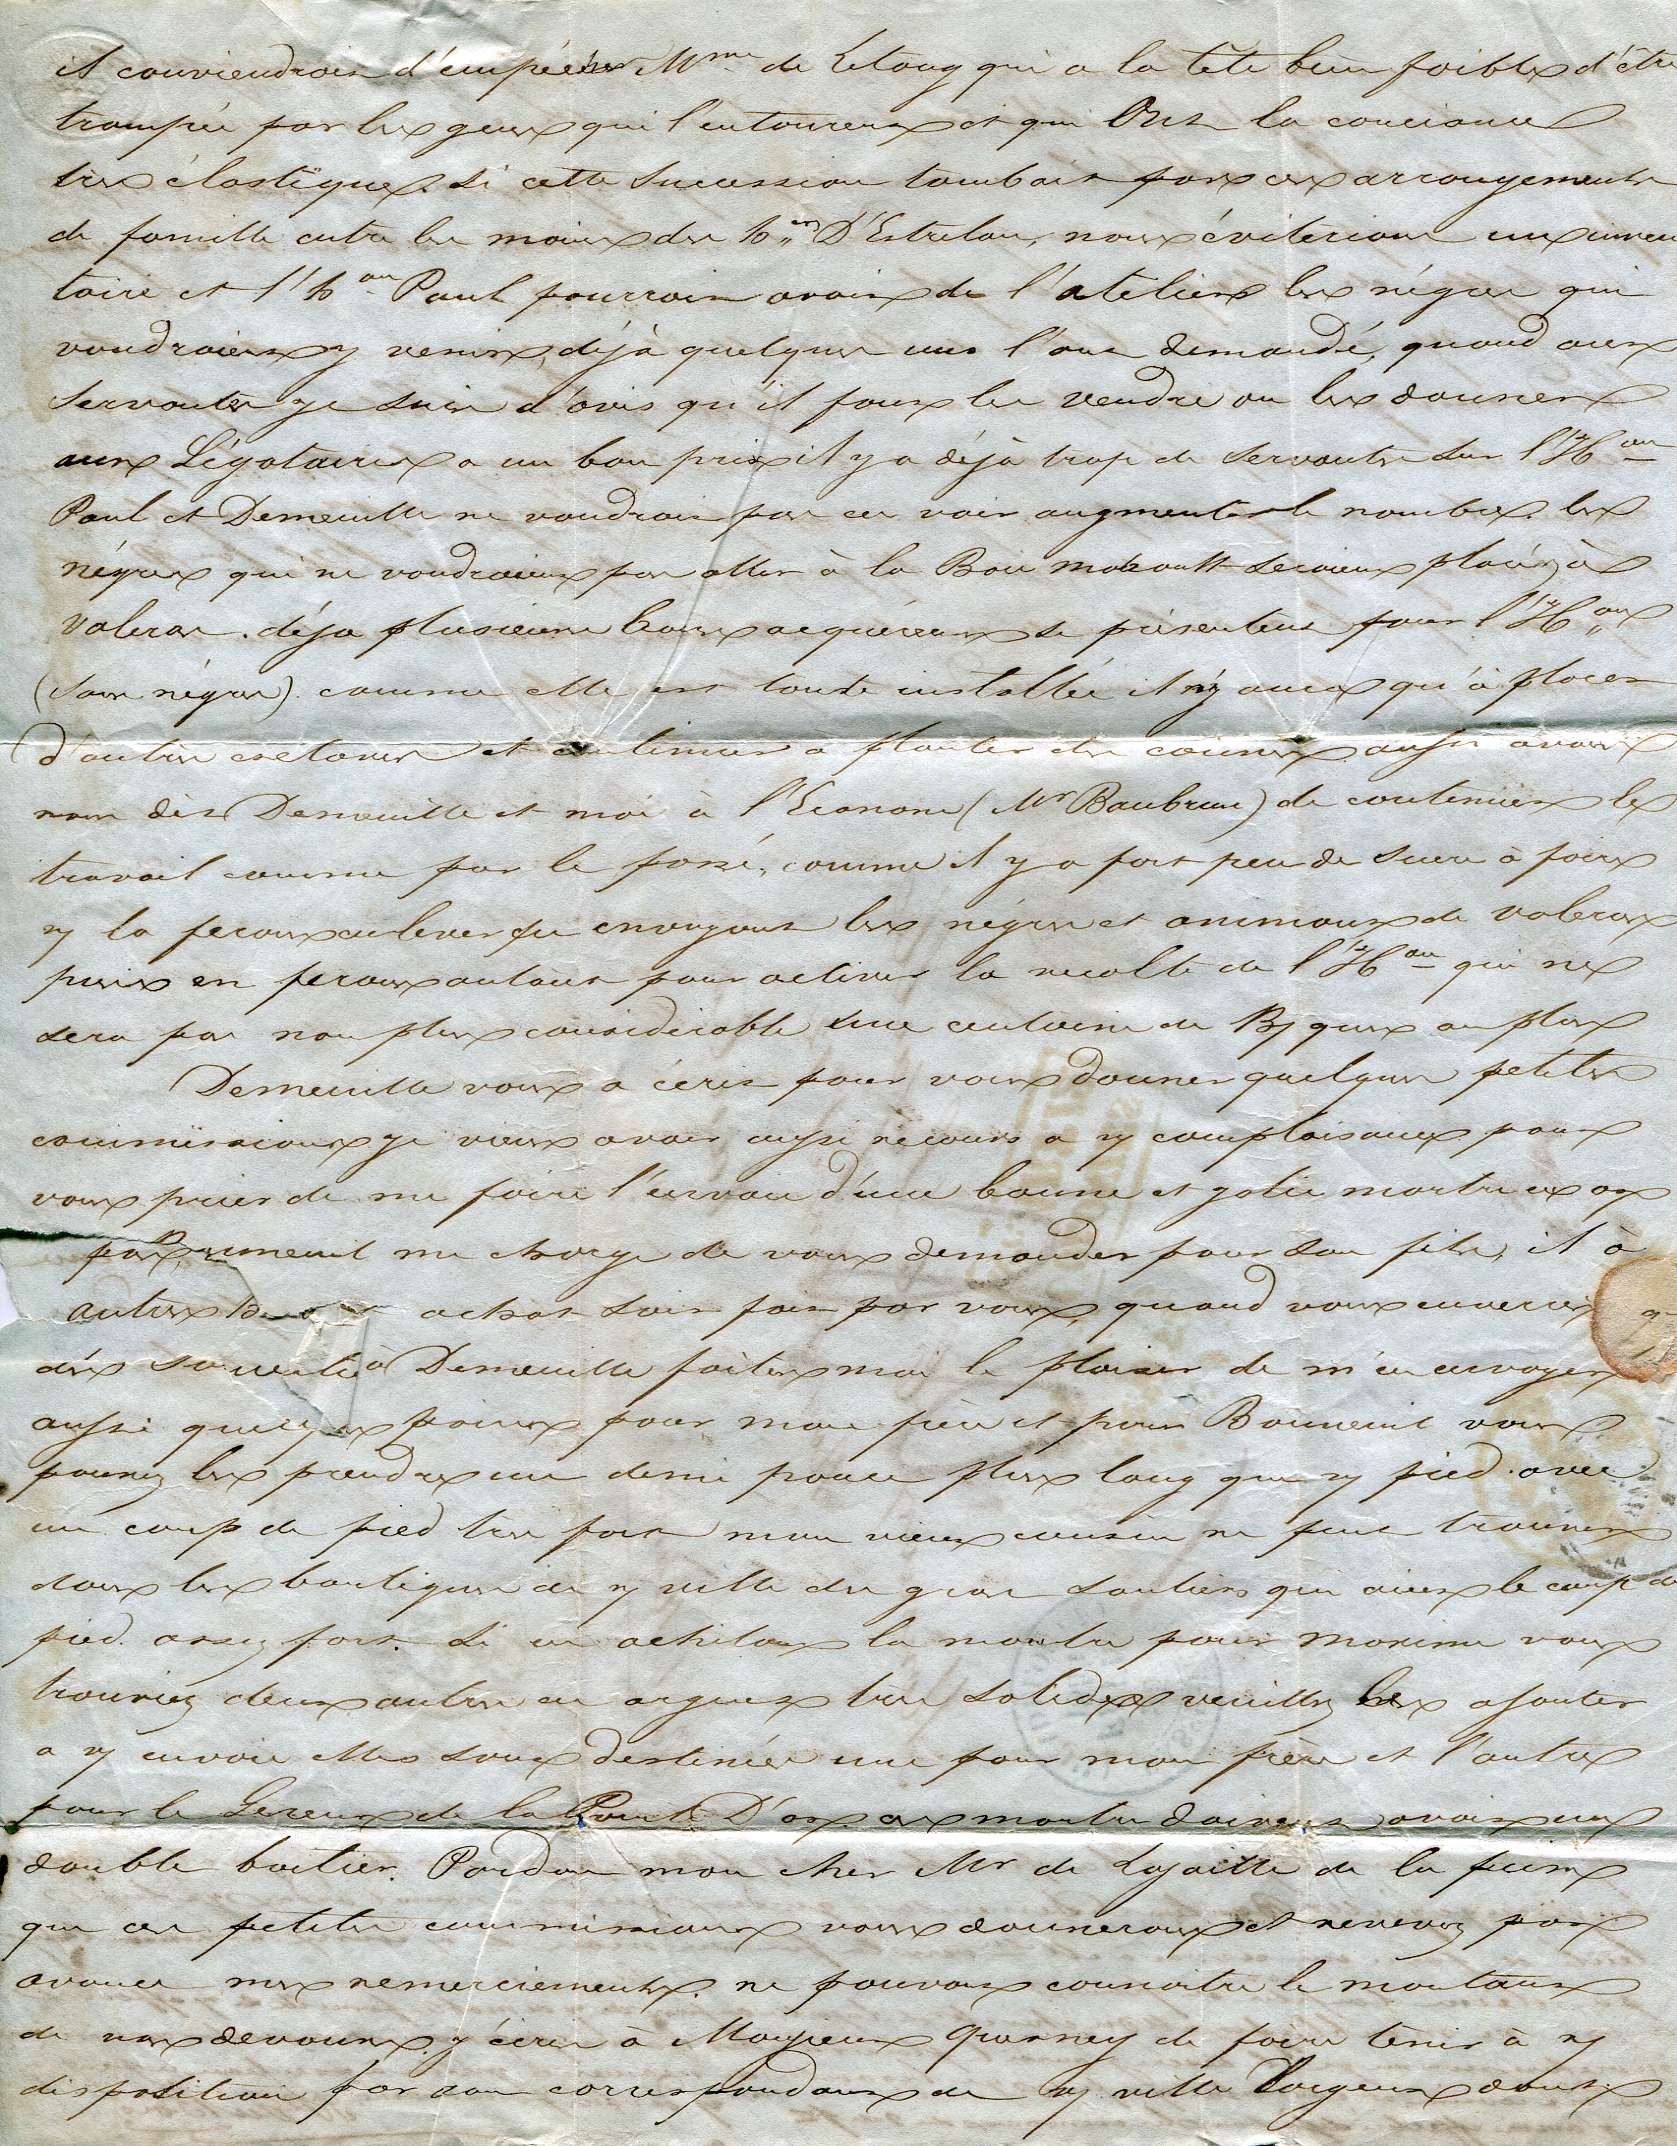 il conviendroit d'empécher Mme de Letang qui a la tête bien foible d'être
trompée par les gens qui l'entourent et qui ont la concience
très élastique. Si cette succession tombait par ces arrangements
de famille entre les mains des hers D'Estrelan, nous éviterions un inven
taire et l'hon Paul pourroit avoir de l'atelier les négres qui
voudroient y venir, déjà quelques uns l'ont demandé, quand aux
servantes je suis d'avis qu'il faut les vendre ou les donner
aux Légataires a un bon prix il y a déjà trop de servantes sur l'Hon
Paul et Demeuille ne voudroit pas en voir augmenter le nombre. les
négres qui ne voudroient pas aller à la Baie seroient placés à
Valeras. déja plusieurs bons acquéreurs se présentent pour l'Hon
(sans négres). comme elle est toute installée il n'y aura qu'à placer
d'autres esclaves et continuer a planter des cannes, aussi avons
nous dit Demeuille et moi à l'Econome (Mr Baubrun) de continuer le
travail comme par le passé, comme il y a fort peu de sucre à faire
n/ la ferons enlever en envoyant les négres et animaux de Valeras
puis en ferons autant pour activer la recolte de l'Hon qui ne
sera pas non plus considérable une centaine de Bques au plus
Demeuille vous a écrit pour vous donner quelques petites
commissions je viens avoir aussi recours a v/ complaisance pour
vous prier de me faire l'envoie d'une bonne et jolie montre en or
que Bonneuil me charge de vous demander pour son fils, il a
achat soit fait par vous, quand vous enverrez
des à Demeuille faites moi le plaisir de m'en envoyer
aussi quelques paires pour mon frère et pour Bonneuil vous
pourrez les prendre un demi pouce plus long que v/ pied avec
un coup de pied très fort mon vieux cousin ne peut trouver
dans les boutiques de n/ ville des gros souliers qui aient le coup de
pied assez fort. Si en achetant la montre pour Maxime vous
trouviez deux autres en argent très solides veuillez les ajouter
a v/ envoie elles sont destinées une pour mon frère et l'autre
pour le Gereur de la Pointe D'or. ces montres doivent avoir un
double boitier. Pardon mon cher Mr de Lajaille de la peine
que ces petites commissions vous donneront et recevez par
avance mes remerciements. ne pouvant connoitre le montant
de vos devours. j'écris à Monsieur Quesney de faire tenir à v/
disposition par son correspondant de v/ ville l'argent dont